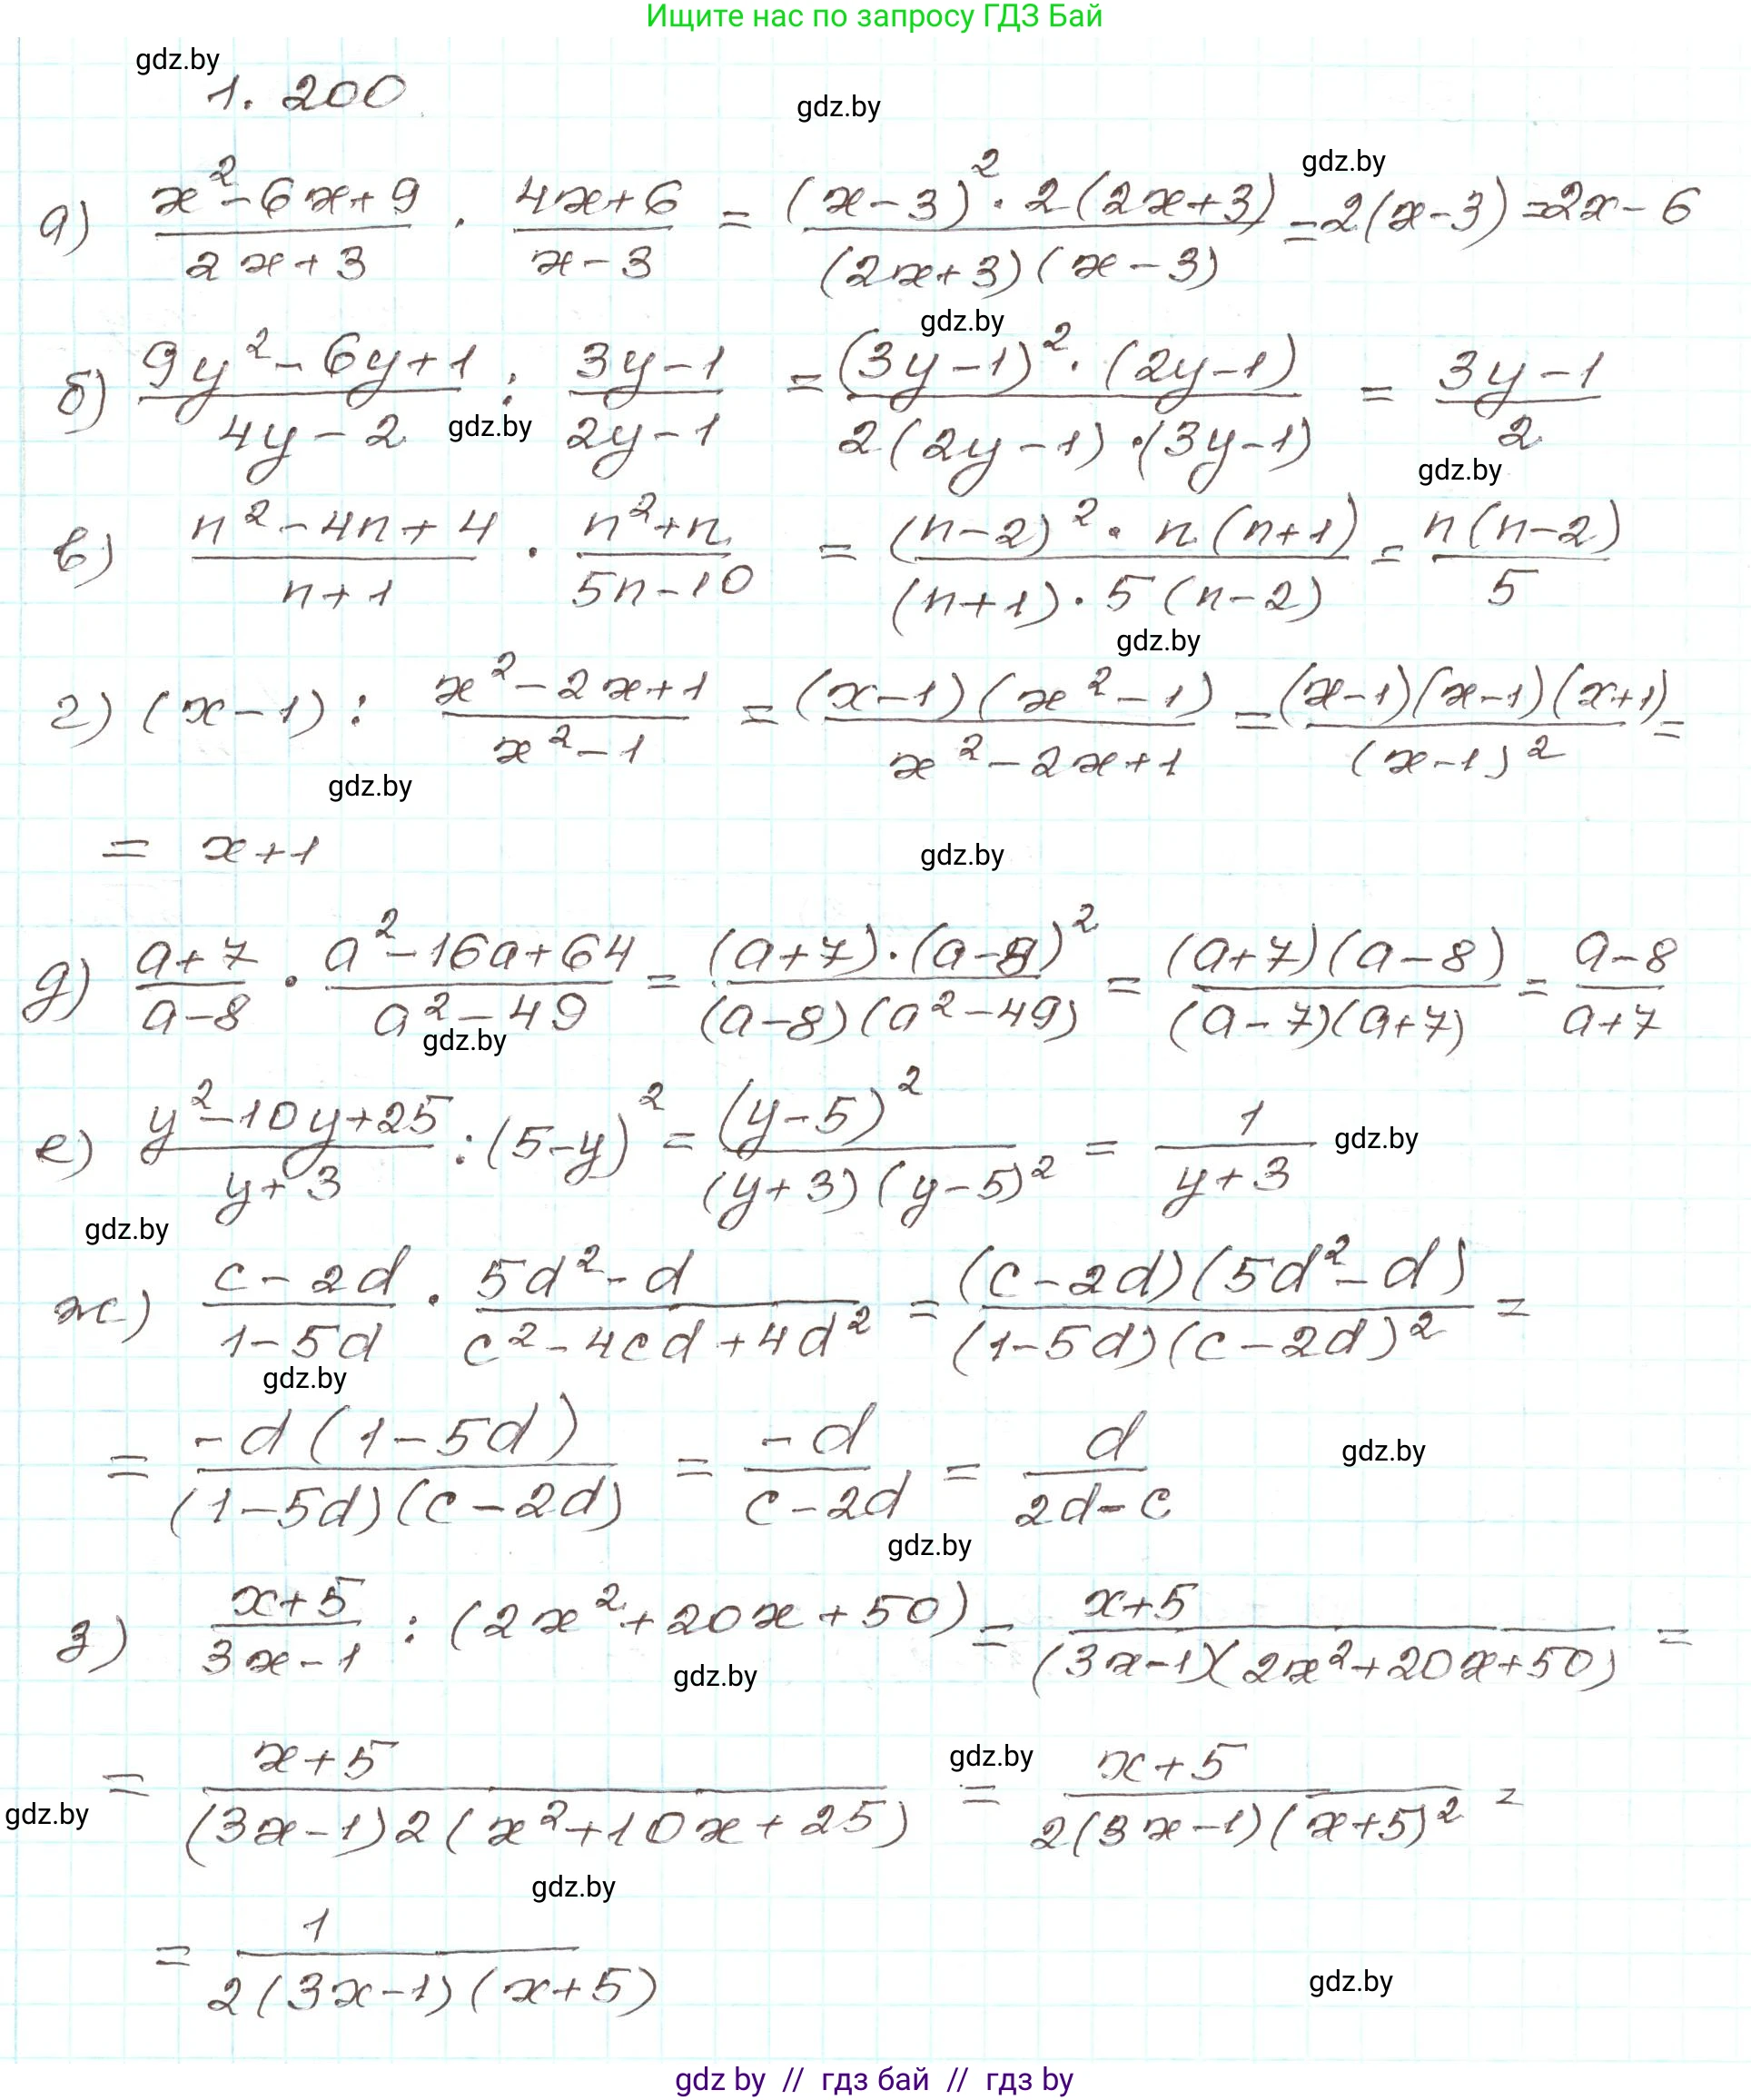 Ищите нас по запросу ГДЗ Бай
gdz.by
1. 200
gdz.by
gdz.by
а) (x²-6x+9)/(2x+3) · (4x+6)/(x-3) = ((x-3)²·2(2x+3))/((2x+3)(x-3)) = 2(x-3) = 2x-6
gdz.by
б) (9y²-6y+1)/(4y-2) : (3y-1)/(2y-1) = ((3y-1)²·(2y-1))/(2(2y-1)·(3y-1)) = (3y-1)/2
gdz.by
gdz.by
в) (n²-4n+4)/(n+1) · (n²+n)/(5n-10) = ((n-2)²·n(n+1))/((n+1)·5(n-2)) = (n(n-2))/5
gdz.by
г) (x-1) : (x²-2x+1)/(x²-1) = ((x-1)(x²-1))/(x²-2x+1) = ((x-1)(x-1)(x+1))/(x-1)² =
gdz.by
= x+1
gdz.by
д) (a+7)/(a-8) · (a²-16a+64)/(a²-49) = ((a+7)·(a-8)²)/((a-8)(a²-49)) = ((a+7)(a-8))/((a-7)(a+7)) = (a-8)/(a+7)
gdz.by
е) (y²-10y+25)/(y+3) : (5-y)² = (y-5)²/((y+3)(y-5)²) = 1/(y+3)
gdz.by
gdz.by
ж) (c-2d)/(1-5d) · (5d²-d)/(c²-4cd+4d²) = ((c-2d)(5d²-d))/((1-5d)(c-2d)²) =
gdz.by
= (-d(1-5d))/((1-5d)(c-2d)) = (-d)/(c-2d) = d/(2d-c)
gdz.by
gdz.by
з) (x+5)/(3x-1) : (2x²+20x+50) = (x+5)/((3x-1)(2x²+20x+50)) =
gdz.by
gdz.by
= (x+5)/((3x-1)2(x²+10x+25)) = (x+5)/(2(3x-1)(x+5)²) =
gdz.by
gdz.by
= 1/(2(3x-1)(x+5))
gdz.by
gdz by // гдз бай // гдз by